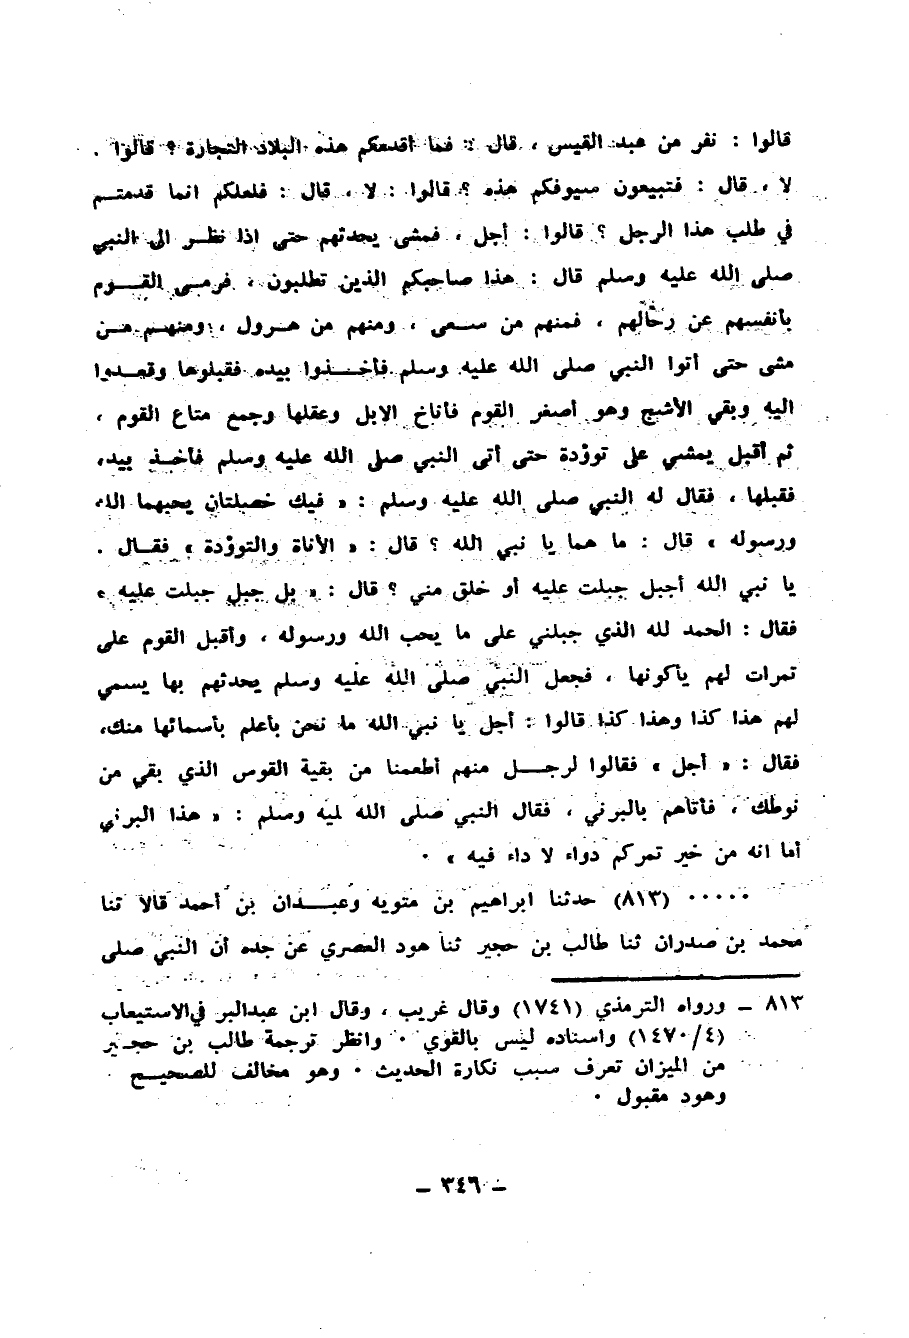 قالوا : نفر من عبد القيس ، قال : فما أقدمكم هذه البلاد التجارة ؟ قالوا .
لا ، قال : فتبيعون سيوفكم هذه ؟ قالوا : لا ، قال : فلعلكم انما قدمتم
في طلب هذا الرجل ؟ قالوا : أجل ، فمشى يحدثهم حتى اذا نظر الى النبي
صلى الله عليه وسلم قال : هذا صاحبكم الذين تطلبون ، فرمى القوم
بأنفسهم عن رحالهم ، فمنهم من سعى ، ومنهم من هرول ، ومنهم من
مشى حتى أتوا النبي صلى الله عليه وسلم فأخذوا بيده فقبلوها وقعدوا
اليه وبقي الأشج وهو أصغر القوم فأناخ الابل وعقلها وجمع متاع القوم ،
ثم أقبل يمشي على توؤدة حتى أتى النبي صلى الله عليه وسلم فأخذ بيده
فقبلها ، فقال له النبي صلى الله عليه وسلم : « فيك خصلتان يحبهما الله
ورسوله » قال : ما هما يا نبي الله ؟ قال : « الأناة والتوؤدة » فقال .
يا نبي الله أجبل جبلت عليه أو خلق مني ؟ قال : « بل جبل جبلت عليه »
فقال : الحمد لله الذي جبلني على ما يحب الله ورسوله ، وأقبل القوم على
تمرات لهم يأكونها ، فجعل النبي صلى الله عليه وسلم يحدثهم بها يسمي
لهم هذا كذا وهذا كذا قالوا : أجل يا نبي الله ما نحن بأعلم بأسمائها منك،
فقال : « أجل » فقالوا لرجل منهم أطعمنا من بقية القوس الذي بقي من
نوطك ، فأتاهم بالبرني ، فقال النبي صلى الله ليه وسلم : « هذا البرني
أما انه من خير تمركم دواء لا داء فيه » ٠
٠٠٠٠٠ (٨١٣) حدثنا ابراهيم بن متويه وعبدان بن أحمد قالا ثنا
محمد بن صدران ثنا طالب بن حجير ثنا هود العصري عن جده أن النبي صلى
٨١٣ ـ ورواه الترمذي (١٧٤١) وقال غريب ، وقال ابن عبدالبر في الاستيعاب
(١٤٧٠/٤) واسناده ليس بالقوي ٠ وانظر ترجمة طالب بن حجير
من الميزان تعرف سبب نكارة الحديث ٠ وهو مخالف للصحيح
وهود مقبول ٠
ـ ٣٤٦ ـ